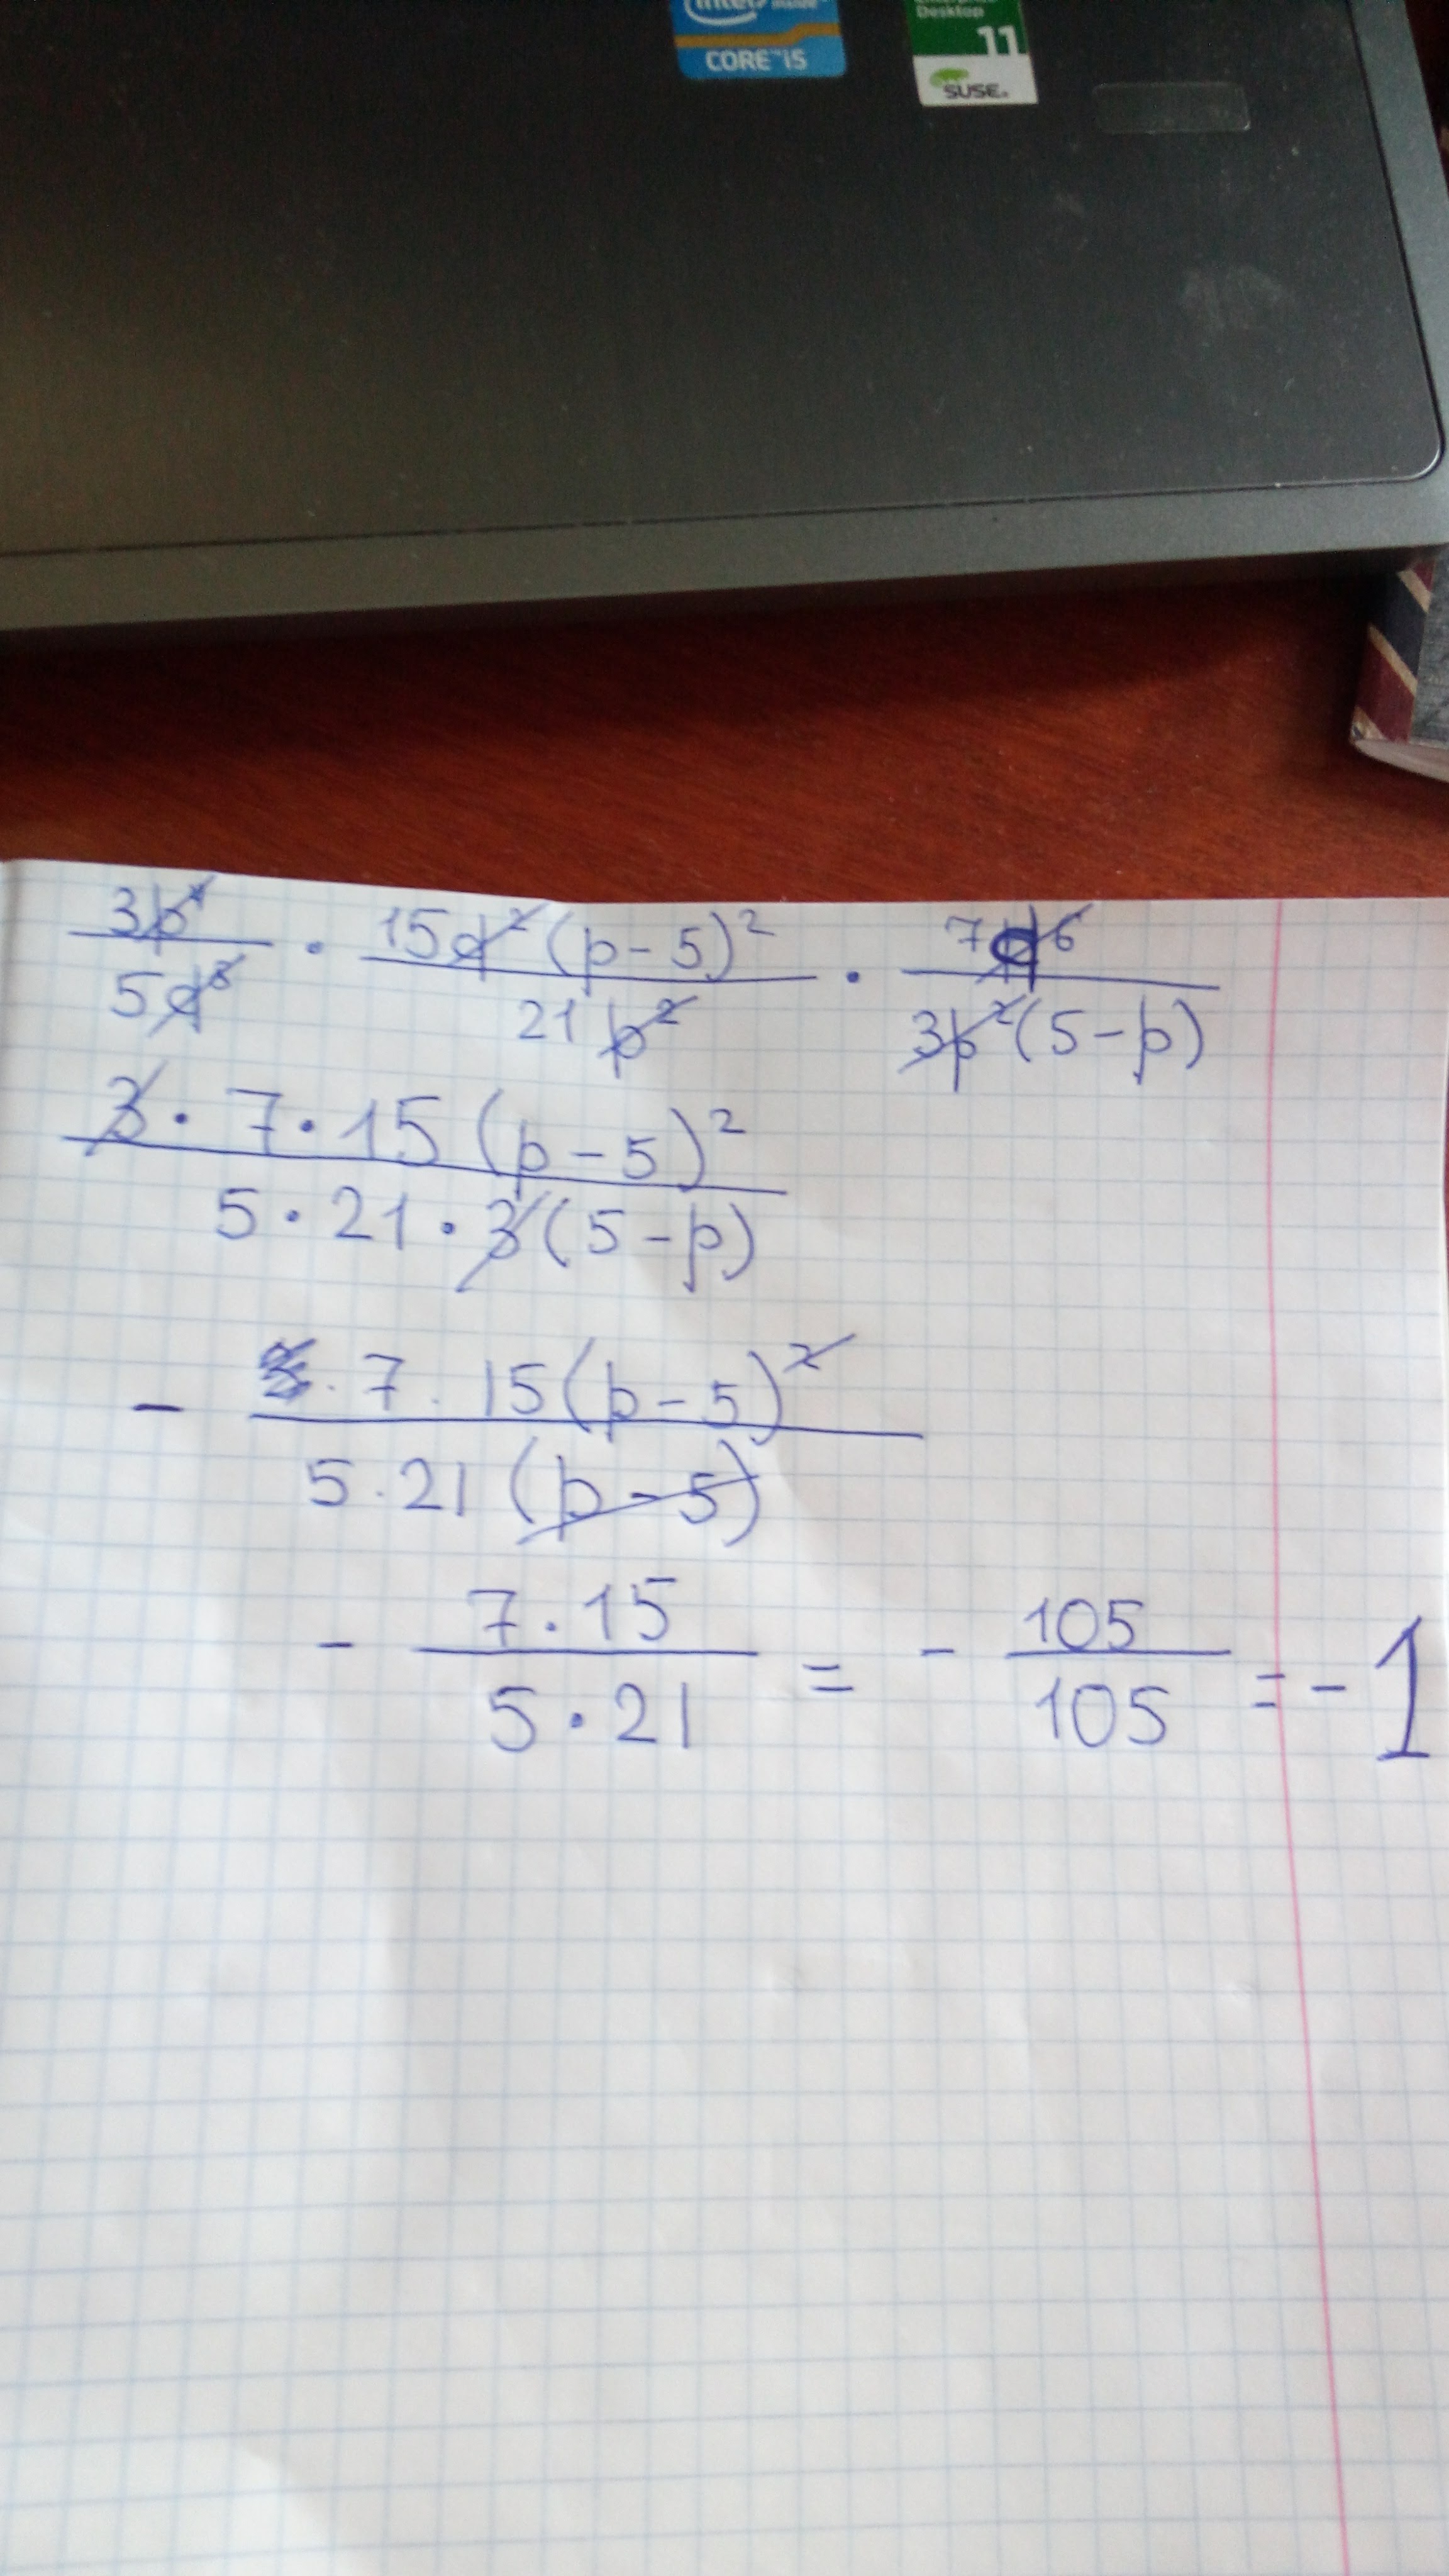 intel inside
CORE™ i5
Enterprise
Desktop
11
SUSE.
3p⁴/5q⁸ · 15q²(p-5)²/21p² · 7q⁶/3p²(5-p)
3·7·15(p-5)²/5·21·3(5-p)
- 3·7·15(p-5)²/5·21(p-5)
- 7·15/5·21 = - 105/105 = -1